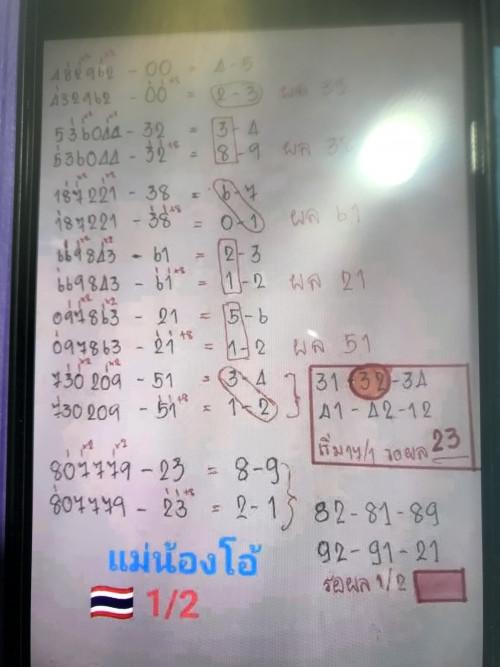 482962 - 00 = 4-5
432962 - 00 +8 = 2-3 ผล 32
536044 - 32 = 3-4
536044 - 32 +8 = 8-9 ผล 38
187221 - 38 = 6-7
187221 - 38 +8 = 0-1 ผล 61
669843 - 61 = 2-3
669843 - 61 +8 = 1-2 ผล 21
097863 - 21 = 5-6
097863 - 21 +8 = 1-2 ผล 51
730209 - 51 = 3-4
730209 - 51 +8 = 1-2
31-32-34
41-42-12
เริ่ม 17/1 รอผล 23
807779 - 23 = 8-9
807779 - 23 +8 = 2-1
82-81-89
92-91-21
รอผล 1/2
แม่น้องโอ้
1/2